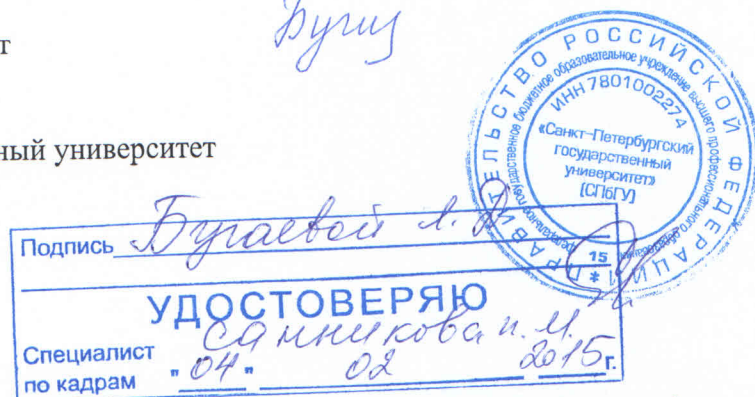 т
ный университет
ПРАВИТЕЛЬСТВО РОССИЙСКОЙ ФЕДЕРАЦИИ *
федеральное государственное бюджетное образовательное учреждение высшего профессионального образования
ИНН 7801002274
«Санкт-Петербургский
государственный
университет»
(СПбГУ)
15
Подпись Бугаевой
УДОСТОВЕРЯЮ
Санникова
Специалист
по кадрам "04" 02 2015 г.